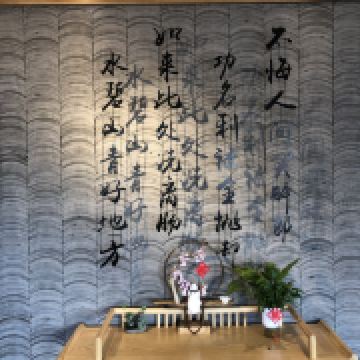 不悔人
功名利 全抛
如来此处洗离肠
水碧山青好地方